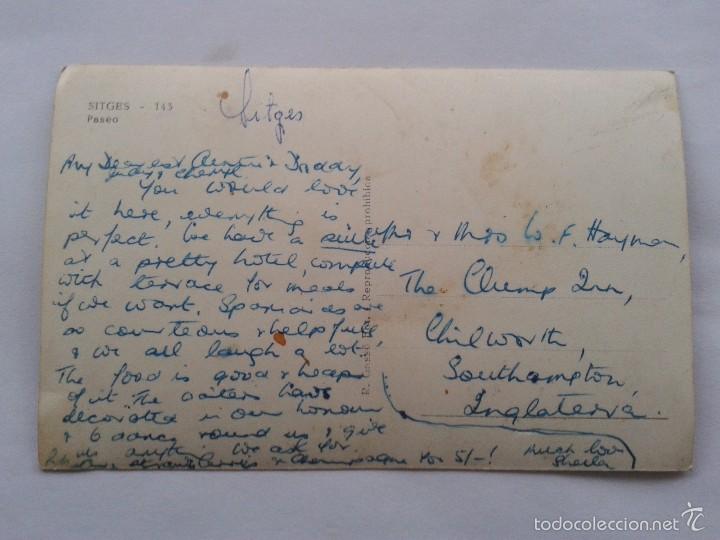 SITGES - 143
Paseo
Sitges
My Dearest & Daddy,
Judy & Cheryl.
You would love
it here, everything is
perfect. We have a suite
at a pretty hotel, complete
with terrace for meals
if we want. Spaniards are
so courteous & helpful,
& we all laugh a lot.
The food is good & heaps
of it. The waiters have
decorated in our honour
& 6 dance round us & give
us anything we ask for
strawberries & champagne for 5/-!
Much love
Sheila
Mr & Mrs W. F. Hayman,
The Clump Inn,
Chilworth,
Southampton,
Inglaterra.
Reproducción prohibida
© todocoleccion.net